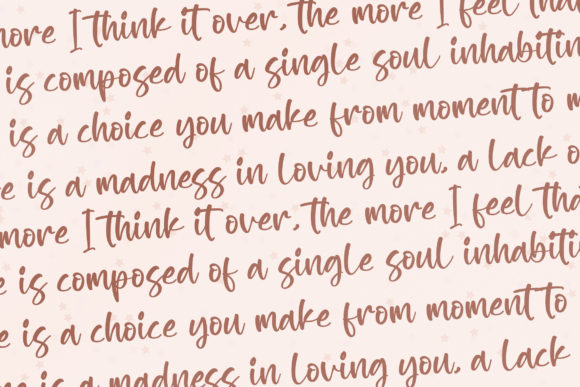 more I think it over, the more I feel tha
is composed of a single soul inhabitin
is a choice you make from moment to m
e is a madness in loving you, a lack o
more I think it over, the more I feel tha
e is composed of a single soul inhabiti
e is a choice you make from moment to
is a madness in loving you, a lack